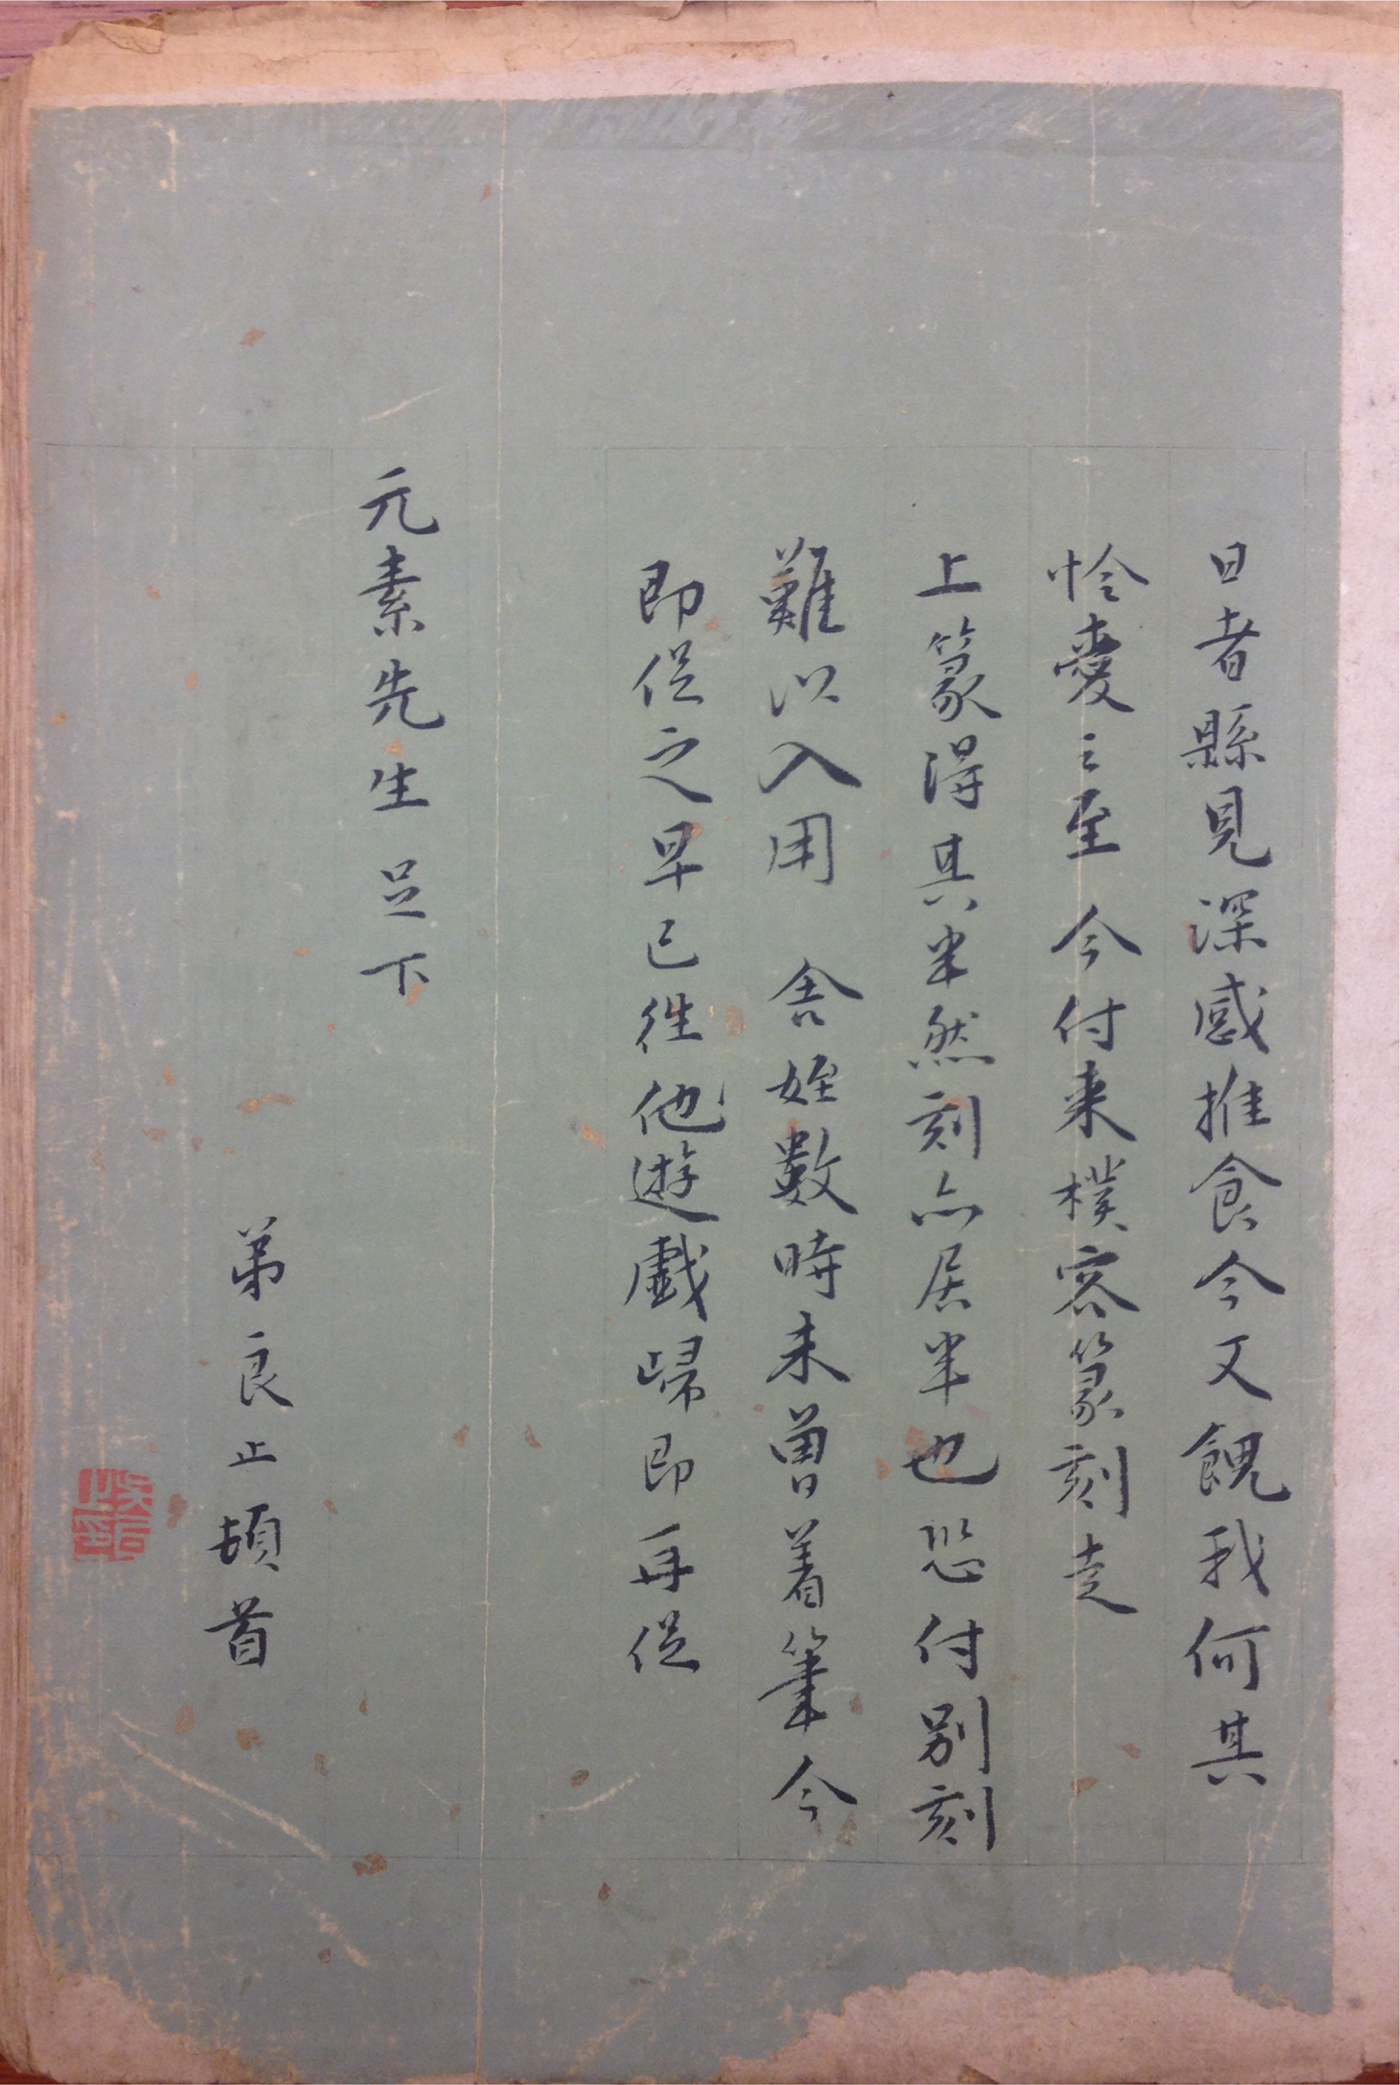 日者縣見深感推食今又餽我何其
怜愛之至今付来樸容篆刻走
上篆得其半然刻亦居半也恐付別刻
難以入用 舍姪數時未曾着筆今
即促之早已往他遊戲歸即再促
元素先生足下
弟良止頓首